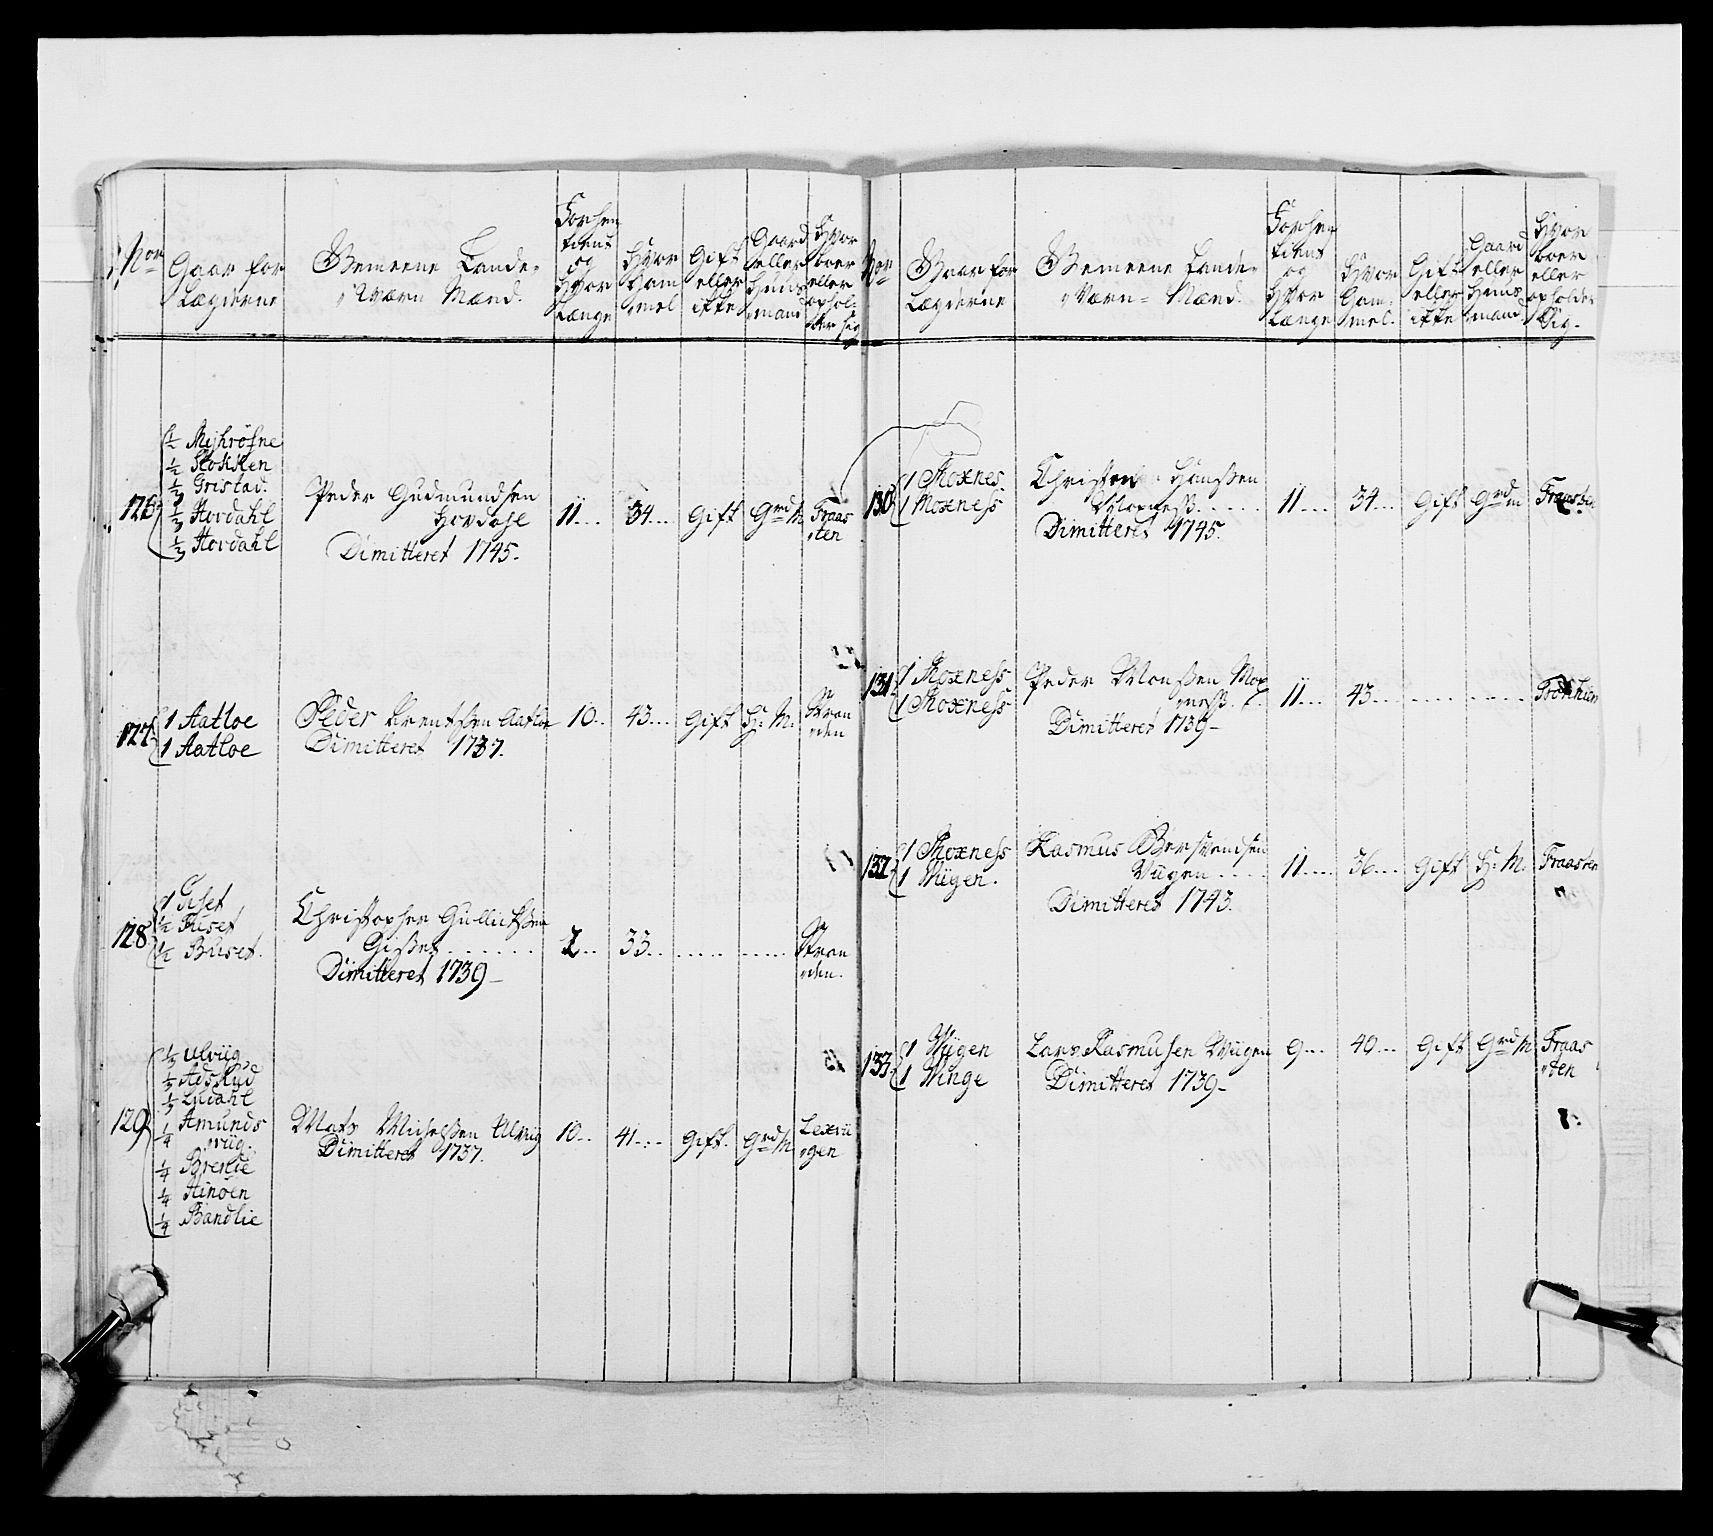 Nor
Gaar for
Lægderne
Gemeene Lande-
Værn Mænd.
Forhen
tient
og
Hvor
Længe
Hvor
Gam
mel
Gift
eller
ikke
Gaard
eller
Huus
mand
Hvor
boer
eller
ophol-
der sig
126
1/2 Mijhrösne
1/2 Stokken
1/3 Gristad.
1/3 Hovdahl
1/3 Hovdahl
Peder Gudmundsen
Hovdahl
Dimitteret 1745.
11... 34... Gift Grd M. Fraas
sten
127
1 Aatloe
1 Aatloe
Peder Arentsen Aatloe
Dimitteret 1737.
10.. 43... Gift H: M. Stran
den
128
1 Giset
1/2 Fuset
1/2 Buset.
Christopher Gullichsen
Gisset
Dimitteret 1739-
2.. 33... Stran
den.
129
1/3 Ulviig
1/3 Adskud
1/3 Ludahl
1/4 Amunds
viig.
1/4 Breslie
1/4 Hinöen
1/4 Bandlie
Mats Michelsen Ulviig
Dimitteret 1737.
10.. 41... Gift. Grd M. Lexvii
gen
Nor
Gaar for
Lægderne
Gemeene Lande-
Værn- Mænd.
Forhen
tient
og
Hvor
Længe
Hvor
Gam-
mel.
Gift
eller
ikke
Gaard
eller
Huus
mand
Hvor
boer
eller
opholder
Sig.
130
1 Moxnes
1 Moxness
Christen Hanssen
Moxness.....
Dimitteret 1745.
11.... 34... Gift Grd M Fraasten
131
1 Moxness
1 Moxness
Peder Monssen Mox
ness.
Dimitteret 1739-
11... 43...
132
1 Moxness
1 Wiigen.
Rasmus Bersvendsen
Wiigen....
Dimitteret 1743.
11.... 36... Gift H: M. Fraasten
133
1 Wiigen
1 Winge
Lars Rasmusen Wiigen
Dimitteret 1739-
9... 40... Gift Grd M. Fraas
ten